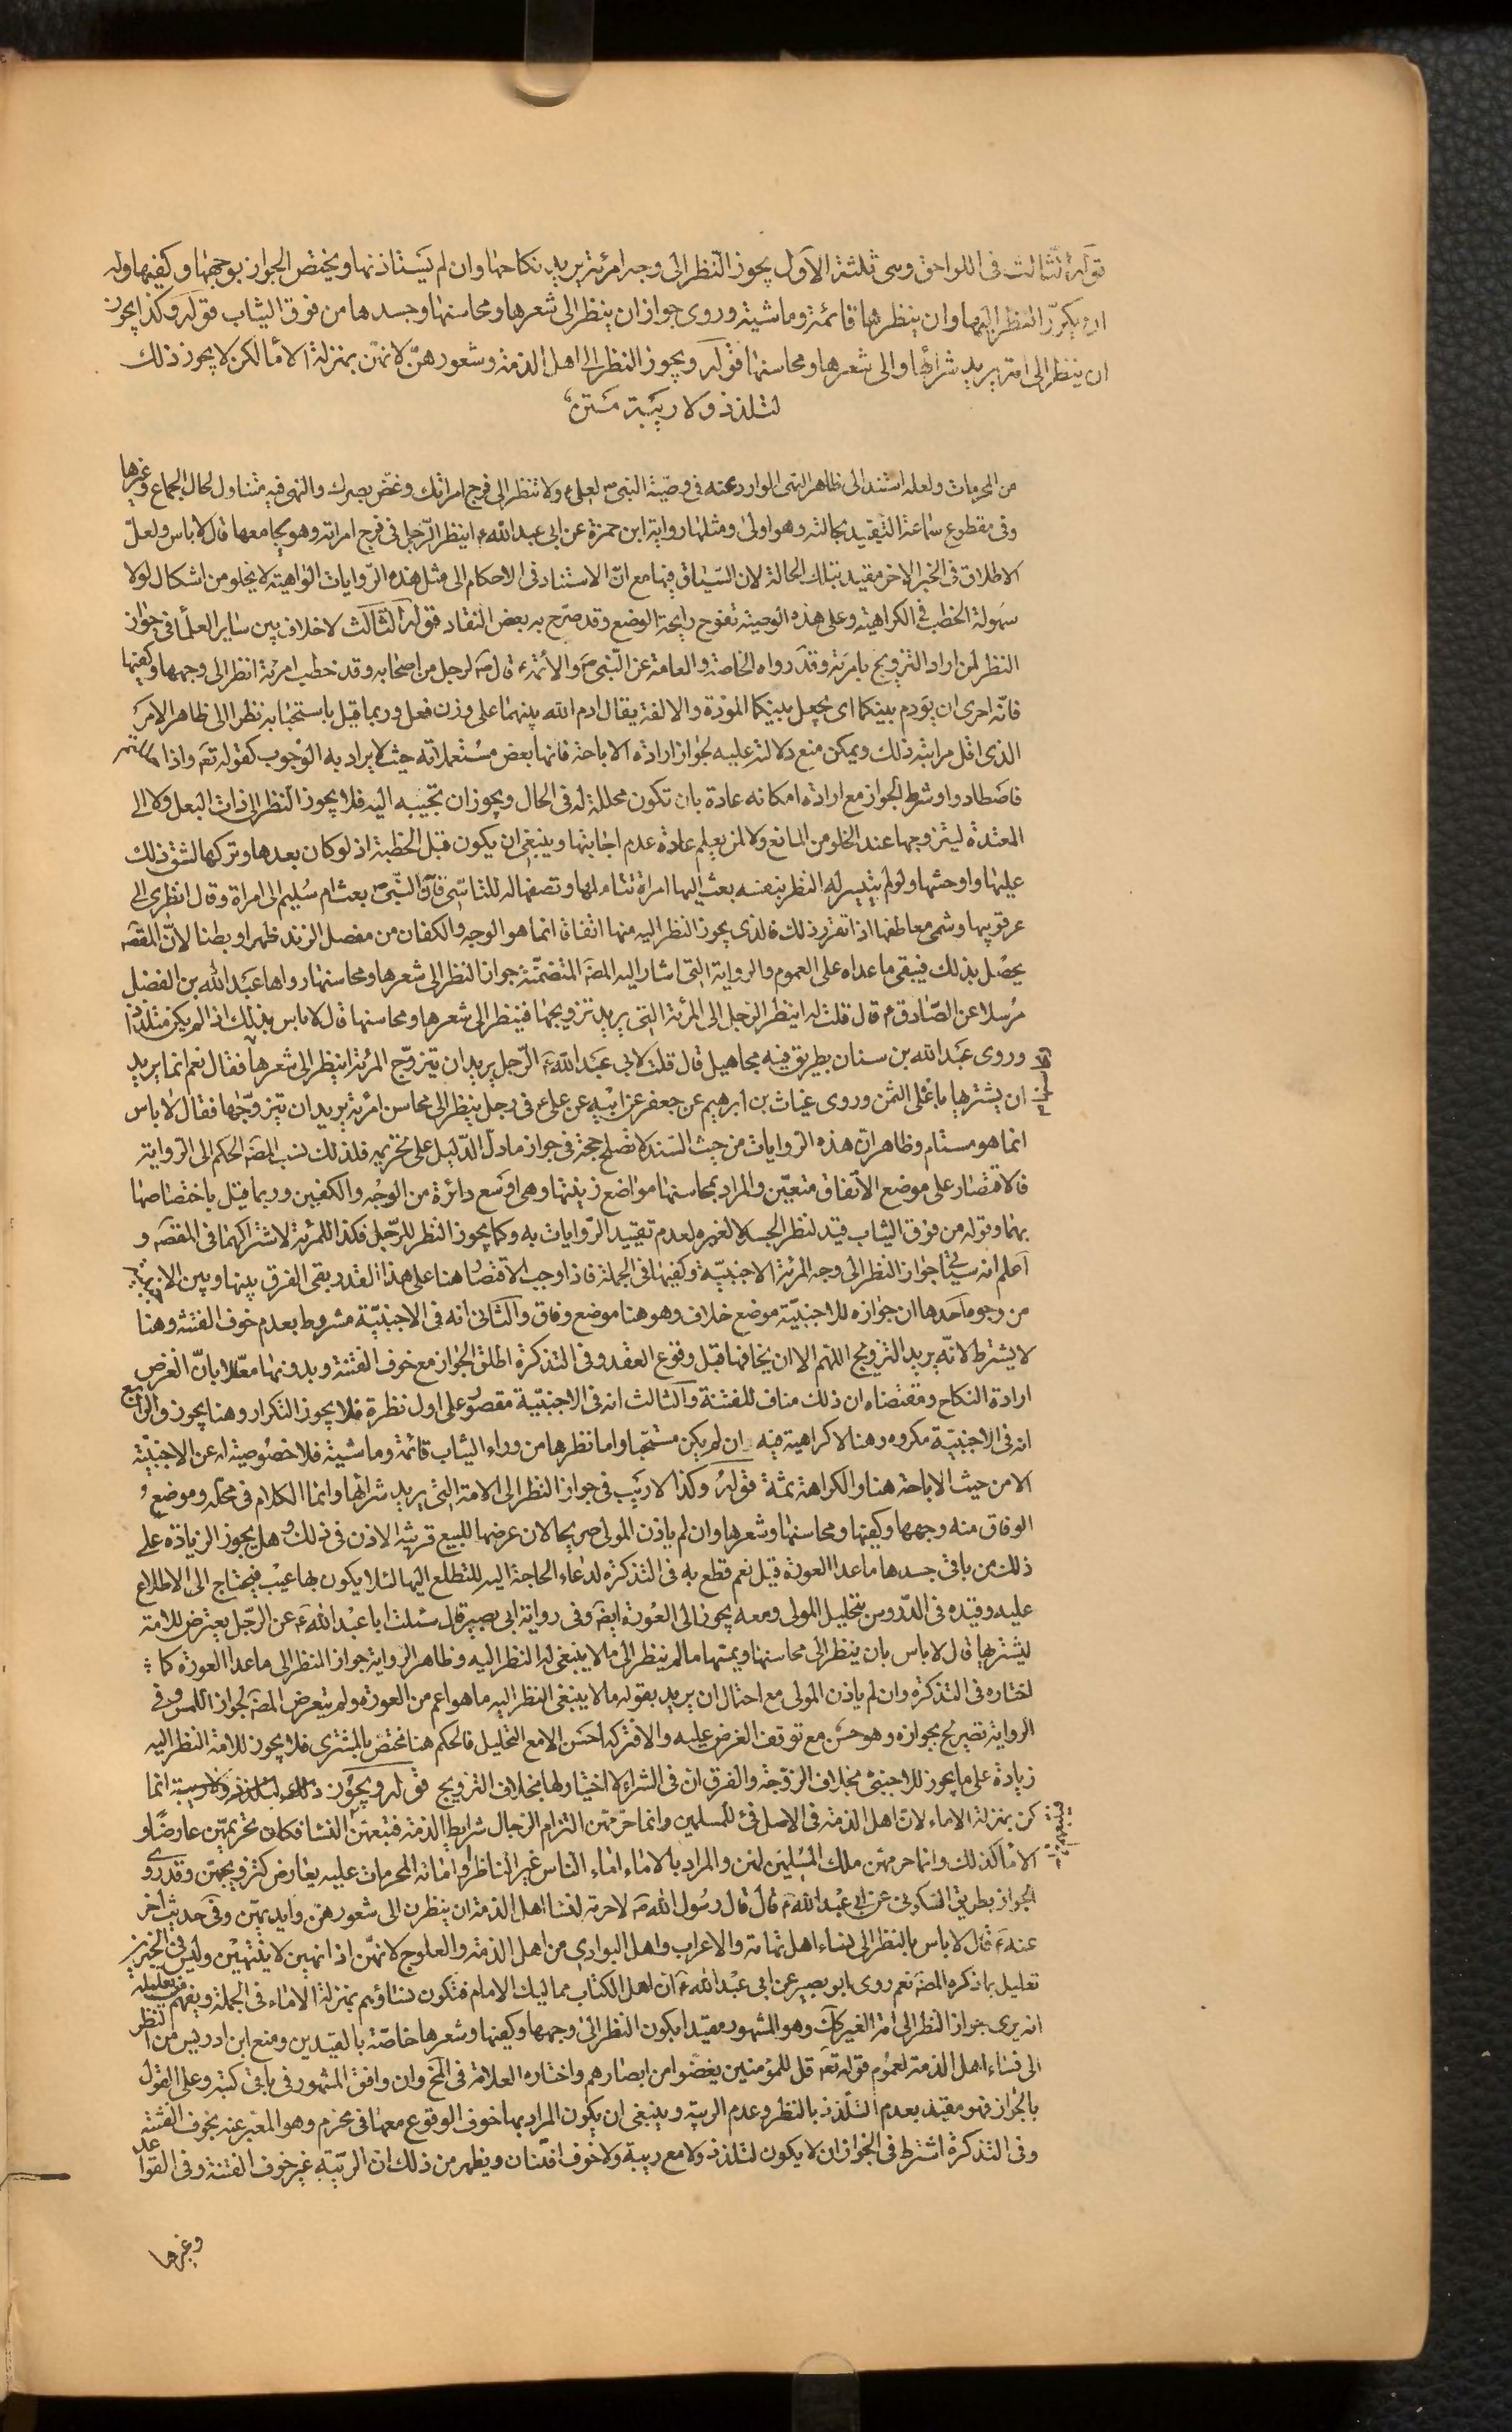 قوله الثالث فى اللواحق وهى ثلثة الاول يجوز النظر الى وجه امرئة يريد نكاحها وان لم يستاذنها ويختص الجواز بوجهها وكفيها وله
ان يكرّر النظر اليها وان ينظرها قائمة وماشية وروى جواز ان ينظر الى شعرها ومحاسنها وجسدها من فوق الثياب قوله وكذا يجوز
ان ينظر الى امة يريد شرائها والى شعرها ومحاسنها قوله ويجوز النظر الى اهل الذمة وشعورهنّ لانهنّ بمنزلة الاماء لكن لا يجوز ذلك
لتلذذ ولا ريبة
من المحرمات ولعله استند الى ظاهر النهى الوارد عنه فى وصيّة النبى ص لعلى ع ولا تنظر الى فرج امراتك وغضّ بصرك والنهى فيه متناول لحال الجماع وغيرها
وفى مقطوع سماعة التقييد بحالته وهو اولى ومثلها رواية ابن حمزة عن ابى عبد الله ع اينظر الرّجل فى فرج امراته وهو يجامعها قال لا باس ولعلّ
الاطلاق فى الخبر الاخر مقيد بتلك الحالة لان السّياق فيها مع انّ الاستناد فى الاحكام الى مثل هذه الرّوايات الواهية لا يخلو من اشكال لولا
سهولة الخطب فى الكراهية وعلى هذه الوصية تفوح رايحة الوضع وقد صرّح به بعض النقاد قوله الثالث لا خلاف بين ساير العلماء فى جواز
النظر لمن اراد التزويج بامرئة وقد رواه الخاصة والعامة عن النّبى ص والائمة ع قال ص لرجل من اصحابه وقد خطب امرئة انظر الى وجهها وكفيها
فانّه احرى ان يؤدم بينكما اى يجعل بينكما المودّة والالفة يقال ادم الله بينهما على وزن فعل وربما قيل باستحبابه نظرا الى ظاهر الامر
الذى اقل مراتبه ذلك ويمكن منع دلالته عليه لجواز ارادة الاباحة فانها بعض مستعملاته حيث لا يراد به الوجوب كقوله تعہ واذا حللتم
فاصطادوا وشرط الجواز مع ارادة امكانه عادة بان تكون محللة له فى الحال ويجوز ان تجيبه اليه فلا يجوز النظر الى ذات البعل ولا الى
المعتدة ليتزوجها عند الخلو من المانع ولا لمن يعلم عادة عدم اجابتها وينبغى ان يكون قبل الخطبة اذ لو كان بعدها وتركها لشق ذلك
عليها واوحشها ولو لم يتيسر له النظر بنفسه بعث اليها امراة تتاملها وتصفها له للتاسّى فانّ النّبى ص بعث ام سليم الى امراة وقال انظرى الى
عرقوبيها وشمى معاطفها اذا تقرر ذلك فالذى يجوز النظر اليه منها اتفاقا انما هو الوجه والكفان من مفصل الزند ظهرا وبطنا لانّ المقصہ
يحصل بذلك فيبقى ما عداه على العموم والرواية التى اشار اليه المصہ المتضمّنة جواز النظر الى شعرها ومحاسنها رواها عبد الله بن الفضل
مرسلا عن الصّادق ع قال قلت له اينظر الرّجل الى المرئة التى يريد تزويجها فينظر الى شعرها ومحاسنها قال لا باس بذلك اذا لم يكن متلذذا
وروى عبد الله بن سنان بطريق فيه مجاهيل قال قلت لابى عبد الله ع الرّجل يريد ان يتزوّج المرئة اينظر الى شعرها فقال نعم انما يريد
ان يشتريها باغلى الثمن وروى غياث بن ابرهيم عن جعفر عن ابيه عن على ع فى رجل ينظر الى محاسن امرئة يريد ان يتزوّجها فقال لا باس
انما هو مستام وظاهر انّ هذه الروايات من حيث السّند لا تصلح حجة فى جواز ما دلّ الدّليل على تحريمه فلذلك نسب المصہ الحكم الى الرواية
فالاقتصار على موضع الاتفاق متعيّن والمراد بمحاسنها مواضع زينتها وهى اوسع دائرة من الوجه والكفين وربما قيل باختصاصها
بهما وقوله من فوق الثياب قيد لنظر الجسد لا لغيره لعدم تقييد الرّوايات به وكما يجوز النظر للرّجل فكذا للمرئة لاشتراكهما فى المقصہ و
اعلم انه سياتى جواز النظر الى وجه المرئة الاجنبيّة وكفيها فى الجملة فاذا وجب الاقتصار هنا على هذا القدر بقى الفرق بينها وبين الاجنبية
من وجوه احدها ان جوازه للاجنبيّة موضع خلاف وهو هنا موضع وفاق والثانى انه فى الاجنبيّة مشروط بعدم خوف الفتنة وهنا
لا يشترط لانّه يريد التزويج اللهم الا ان يخافها قبل وقوع العقد وفى التذكرة اطلق الجواز مع خوف الفتنة وبدونها معلّلا بانّ الغرض
ارادة النكاح ومقتضاه ان ذلك مناف للفتنة والثالث انه فى الاجنبيّة مقصور على اول نظرة فلا يجوز التكرار وهنا يجوز والرابع
انه فى الاجنبيّة مكروه وهنا لا كراهية فيه ان لم يكن مستحبا واما نظرها من وراء الثياب قائمة وماشية فلا خصوصية له عن الاجنبيّة
الا من حيث الاباحة هنا والكراهة ثمة قوله وكذا لا ريب فى جواز النظر الى الامة التى يريد شرائها وانما الكلام فى محله وموضع
الوفاق منه وجهها وكفيها ومحاسنها وشعرها وان لم ياذن المولى صريحا لان عرضها للبيع قرينة الاذن فى ذلك وهل يجوز الزيادة على
ذلك من باقى جسدها ما عدا العورة قيل نعم قطع به فى التذكرة لدعاء الحاجة اليه للتطلع اليها لئلا يكون بها عيب فيحتاج الى الاطلاع
عليه وقيده فى الدّروس بتحليل المولى ومعه يجوز الى العورة ايضہ وفى رواية ابى بصير قال سئلت ابا عبد الله ع عن الرّجل يعترض للامة
ليشتريها قال لا باس بان ينظر الى محاسنها ويمسها ما لم ينظر الى ما لا ينبغى له النظر اليه وظاهر الرواية جواز النظر الى ما عدا العورة كما
اختاره فى التذكرة وان لم ياذن المولى مع احتمال ان يريد بقوله ما لا ينبغى النظر اليه ما هو اعم من العورة ولم يتعرض المصہ لجواز اللمس وفى
الرواية تصريح بجوازه وهو حسن مع توقف الغرض عليه والا فتركه احسن الا مع التحليل فالحكم هنا مختص بالمشترى فلا يجوز للامة النظر اليه
زيادة على ما يجوز للاجنبىّ بخلاف الزوجة والفرق ان فى الشراء لا اختيار لها بخلاف التزويج قوله ويجوز انما
كن بمنزلة الاماء لان اهل الذمة فى الاصل فئ للمسلمين وانما حرمتهن التزام الرجال شرايط الذمة فتبعتهنّ النساء فكان تحريمهنّ عارضا و
الاماء كذلك وانما حرمتهن ملك المسلمين لهن والمراد بالاماء اماء الناس غير الناظر او امائه المحرمات عليه بعارض كتزويجهنّ وقد روى
الجواز بطريق السكونى عن ابى عبد الله ع قال قال رسول الله ص لا حرمة لنساء اهل الذمة ان ينظرن الى شعورهنّ وايديهنّ وفى حديث اخر
عنه ع قال لا باس بالنظر الى نساء اهل تهامة والاعراب واهل البوادى من اهل الذمة والعلوج لانهنّ اذا نهين لا ينتهين وليس فى الخبرين
تعليل بما ذكره المصہ نعم روى ابو بصير عن ابى عبد الله ع ان اهل الكتاب مماليك الامام فتكون نساؤهم بمنزلة الاماء فى الجملة ويفهم من تعليله
انه يرى جواز النظر الى امة الغير كذلك وهو المشهور مقيدا بكون النظر الى وجهها وكفيها وشعرها خاصّة بالقيدين ومنع ابن ادريس من النظر
الى نساء اهل الذمة لعموم قوله تعہ قل للمؤمنين يغضّوا من ابصارهم واختاره العلامة فى المخ وان وافق المشهور فى باقى كتبه وعلى القول
بالجواز فهو مقيد بعدم التلذذ بالنظر وعدم الريبة وينبغى ان يكون المراد بها خوف الوقوع معها فى محرم وهو المعبر عنه بخوف الفتنة
وفى التذكرة اشترط فى الجواز ان لا يكون لتلذذ ولا مع ريبة ولا خوف افتنان ويظهر من ذلك ان الريبة غير خوف الفتنة وفى القواعد
وغيرها